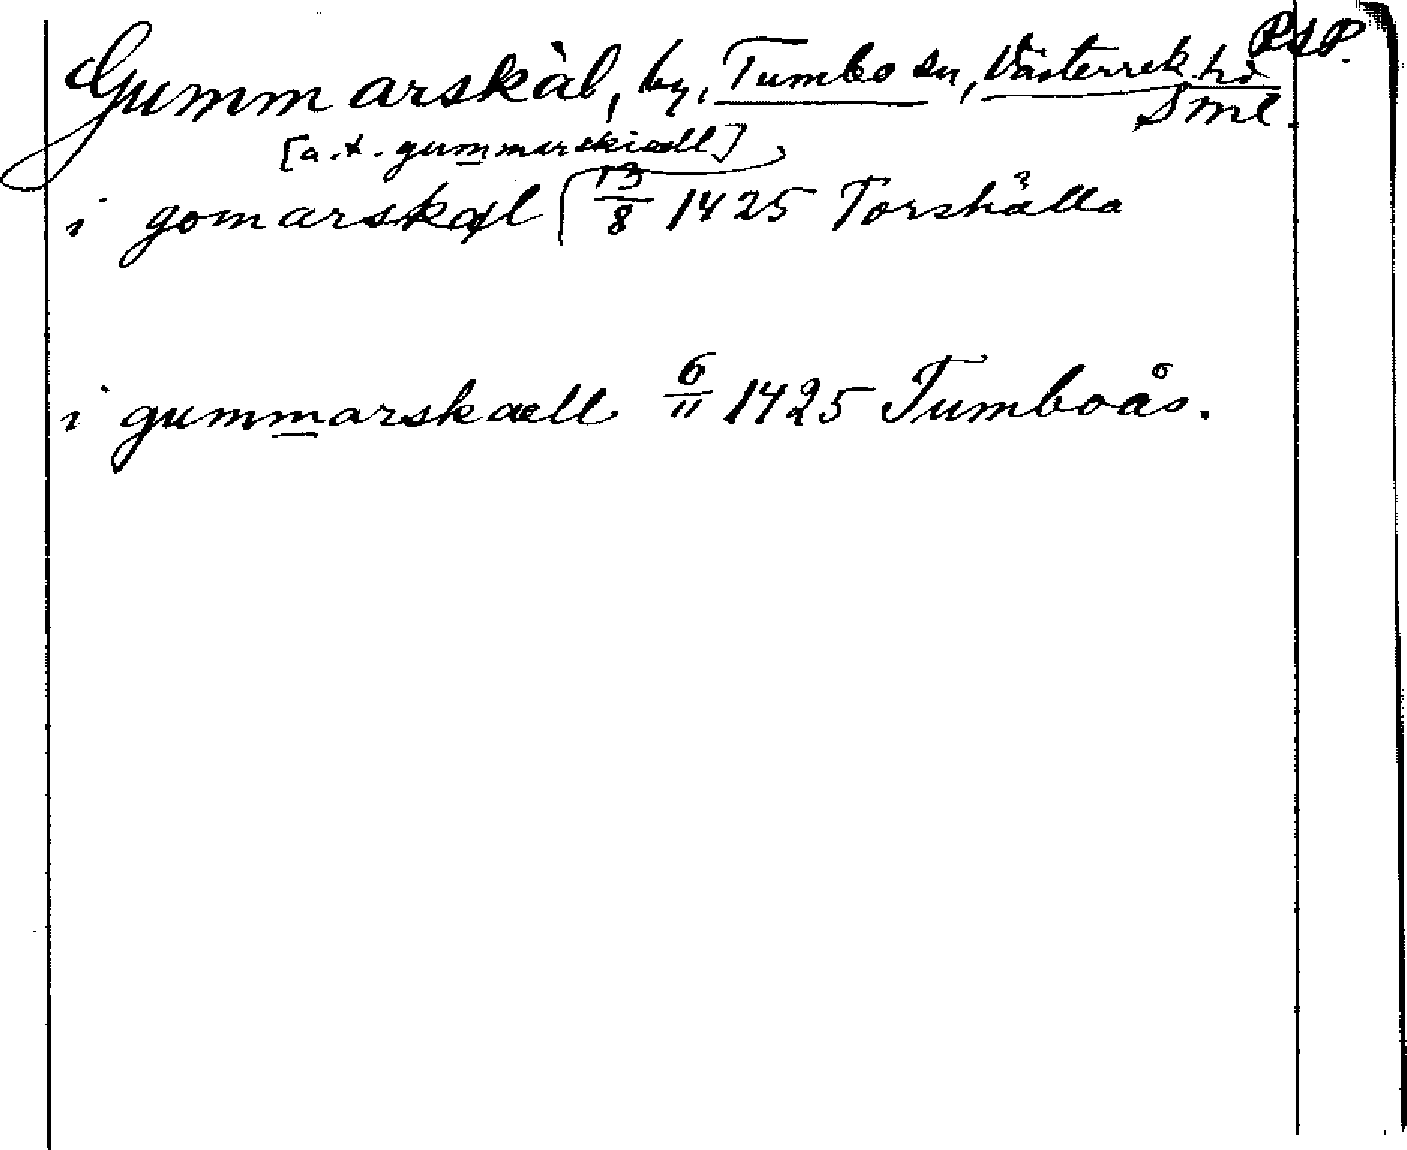 RSP.
Gummarskäl, by, Tumbo sn, Västerrek. hd
Sml
[a.t. gummarskiædl]
i gomarskæl 13/8 1425 Torshälla
i gummarskaell 6/11 1425 Tumboås.